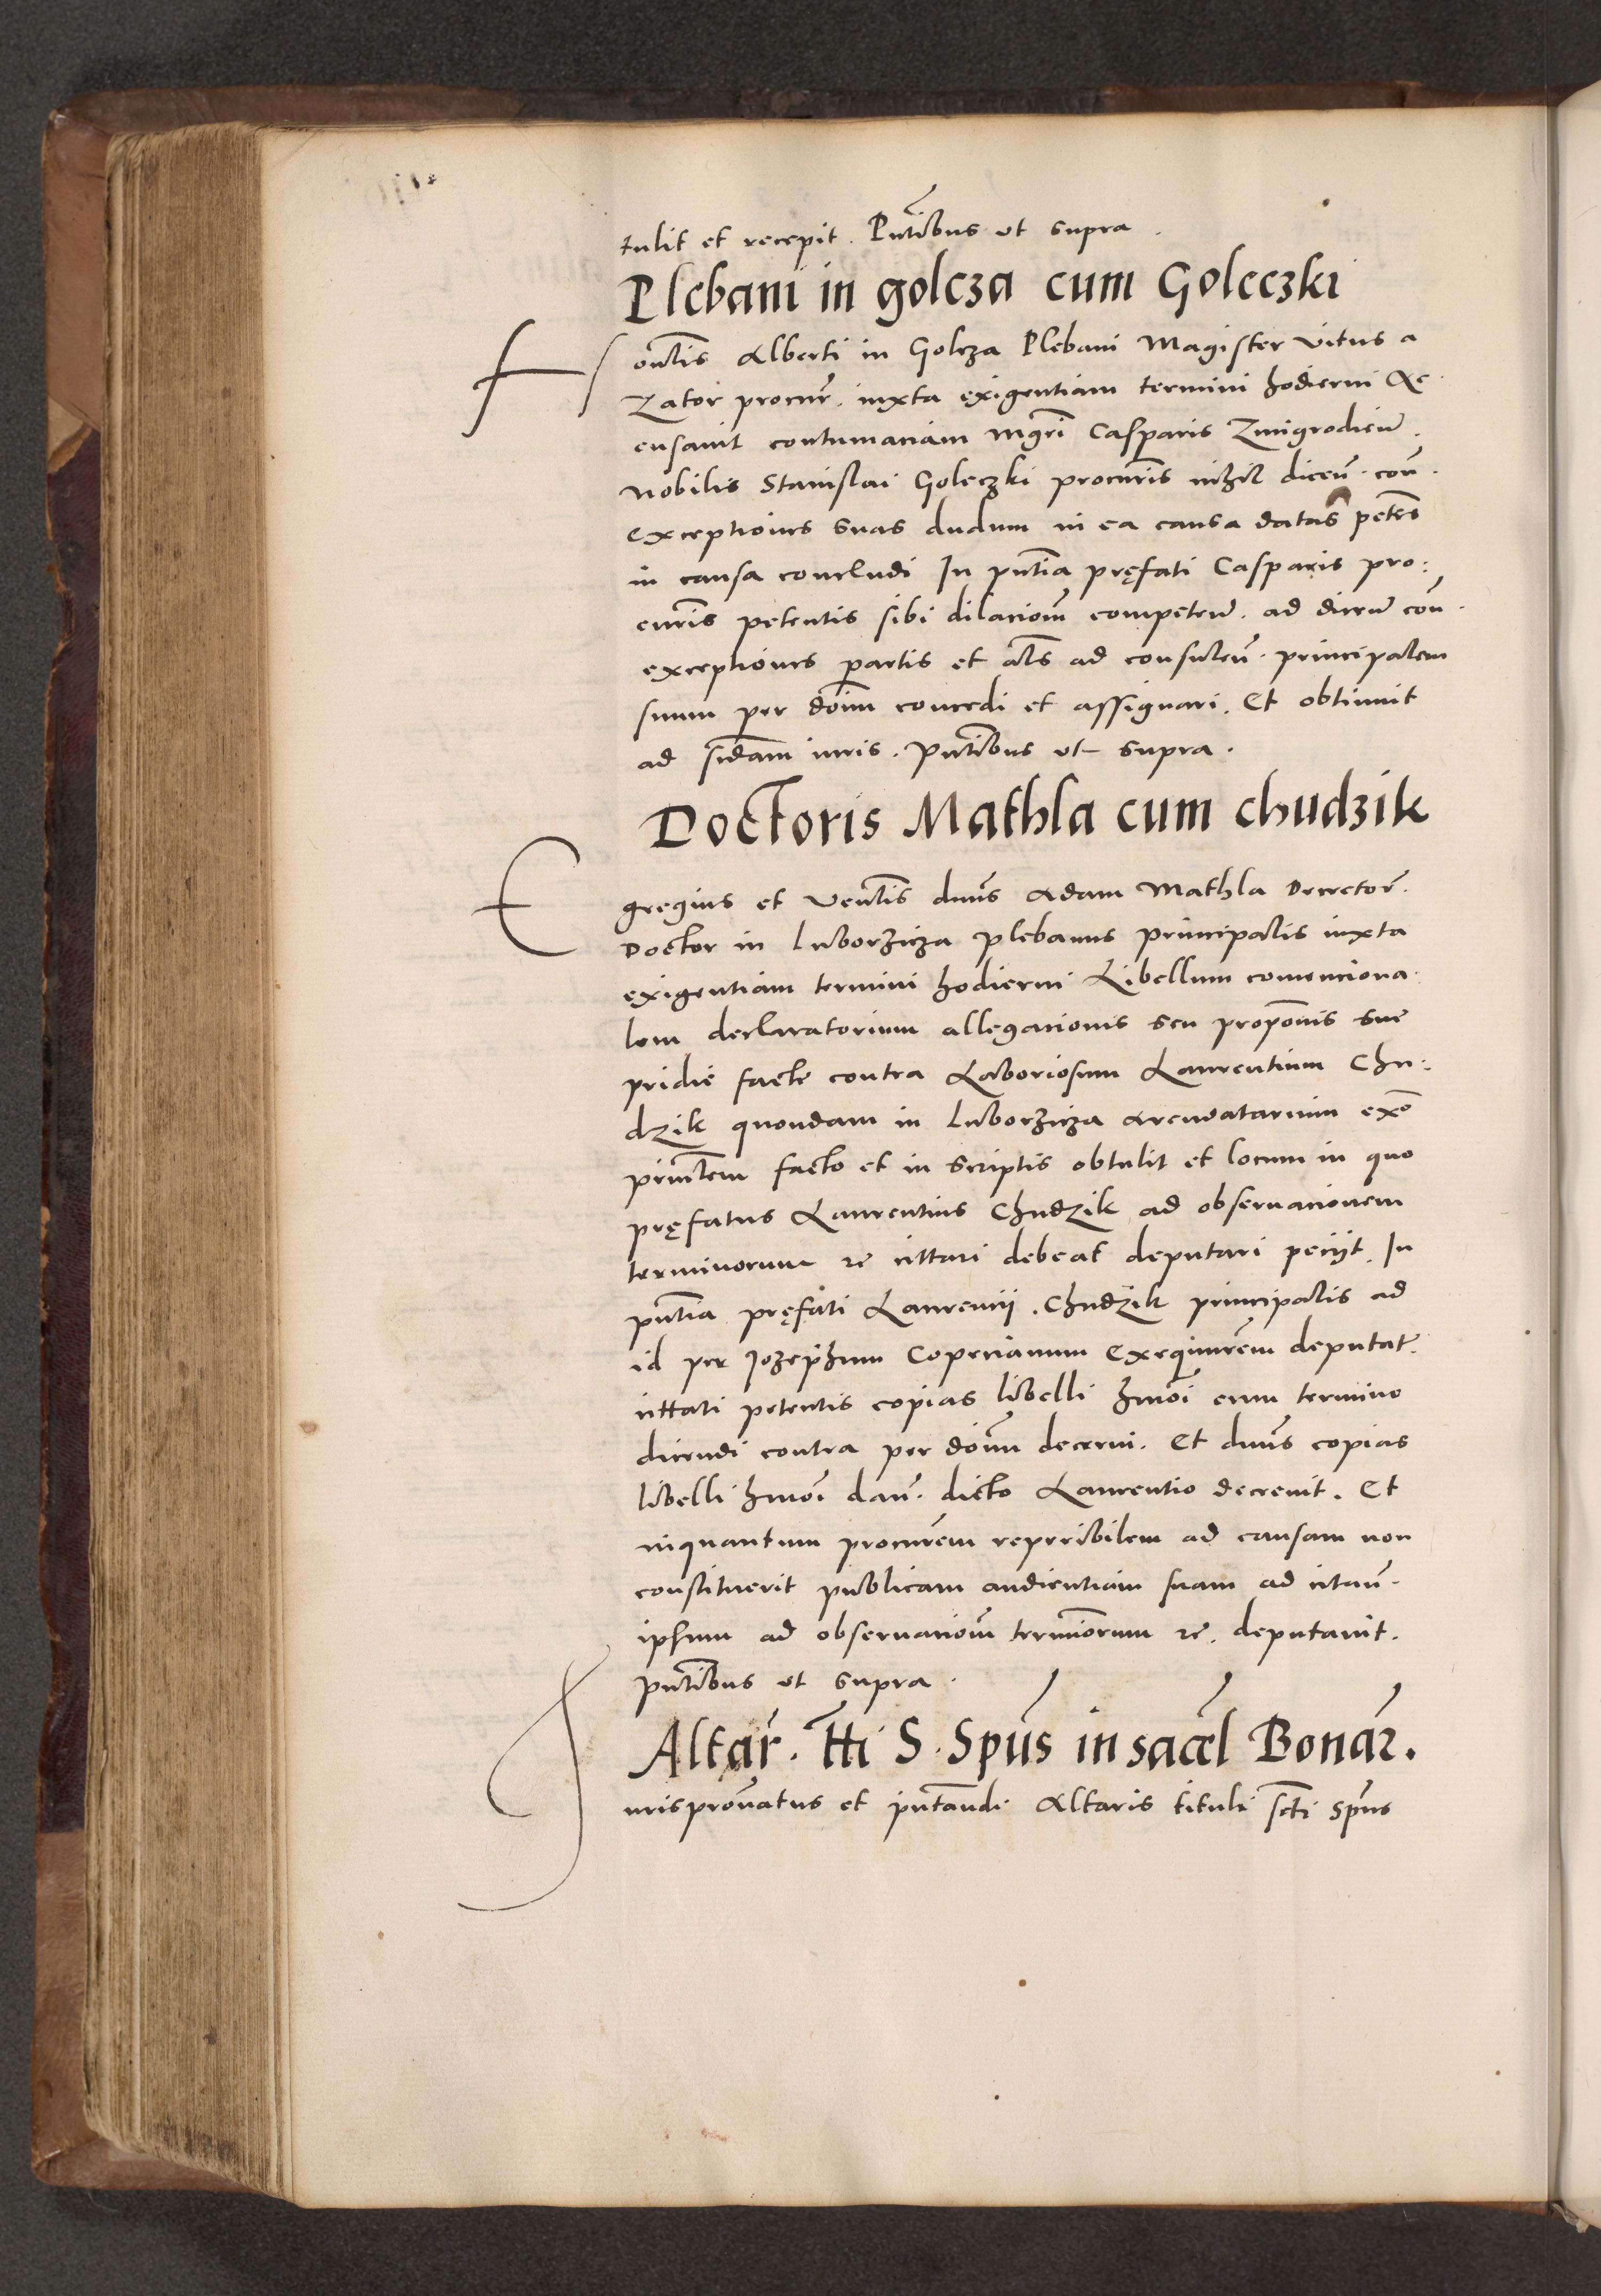 tulit et recepit. Pñtibus ut supra.
Plebani in golcza cum Goleczki
Honestis Alberti in Golcza Plebani Magister Vitus a
Zator procur̃. iuxta exigentiam termini hodierni Ac
cusavit contumaciam mgr̃i Casparis Zmigrodicen̄.
Nobilis Stanislai Goleczki procur̃is nihil dicen̄. con̄.
exceptiones suas dudum in ea causa datas peteñ
in causa concludi In pñtia pręfati Casparis pro:
cur̃is petentis sibi dilacioñ competen̄. ad dicen̄ con̄.
exceptiones partis et als̃ ad consulen̄. principalem
suum per dom̃ concedi et assignari. Et obtinuit
ad sc̃dam iuris. Pñtibus ut supra.
Doctoris Mathla cum chudzik
Egregius et Ven̄lis dñus Adam Mathla Decretor̃.
Doctor in Luborzicza plebanus principalis iuxta
exigentiam termini hodierni Libellum convenciona
lem declaratorium allegacionis seu propõnis sue
pridie facte contra Laboriosum Laurentium Chu:
dzik quondam in Luborzicza Arendatarium ex õ
pñtem facto et in scriptis obtulit et locum in quo
pręfatus Laurentius Chudzik ad observacionem
terminorum ꝛc cittari debeat deputari peciit. In
pñtia pręfati Laurencii. Chudzik principalis ad
id per Jozephum Copecianum Exequutor̃em deputat̃.
cittati petentis copias libelli hmõi cum termino
dicendi contra per dom̃ decerni. Et dñus copias
libelli hmõi dan̄. dicto Laurentio decrevit. Et
inquantum procur̃em reperibilem ad causam non
constituerit publicam audientiam suam ad citan̄.
ipsum ad observacioñ terminorum ꝛc. deputavit.
Pñtibus ut supra.
Altar̃. Tt̃i S. Spũs in sacel Bonar̃.
Jurispatroñatus et pñtandi Altaris tituli sc̃ti Spũs